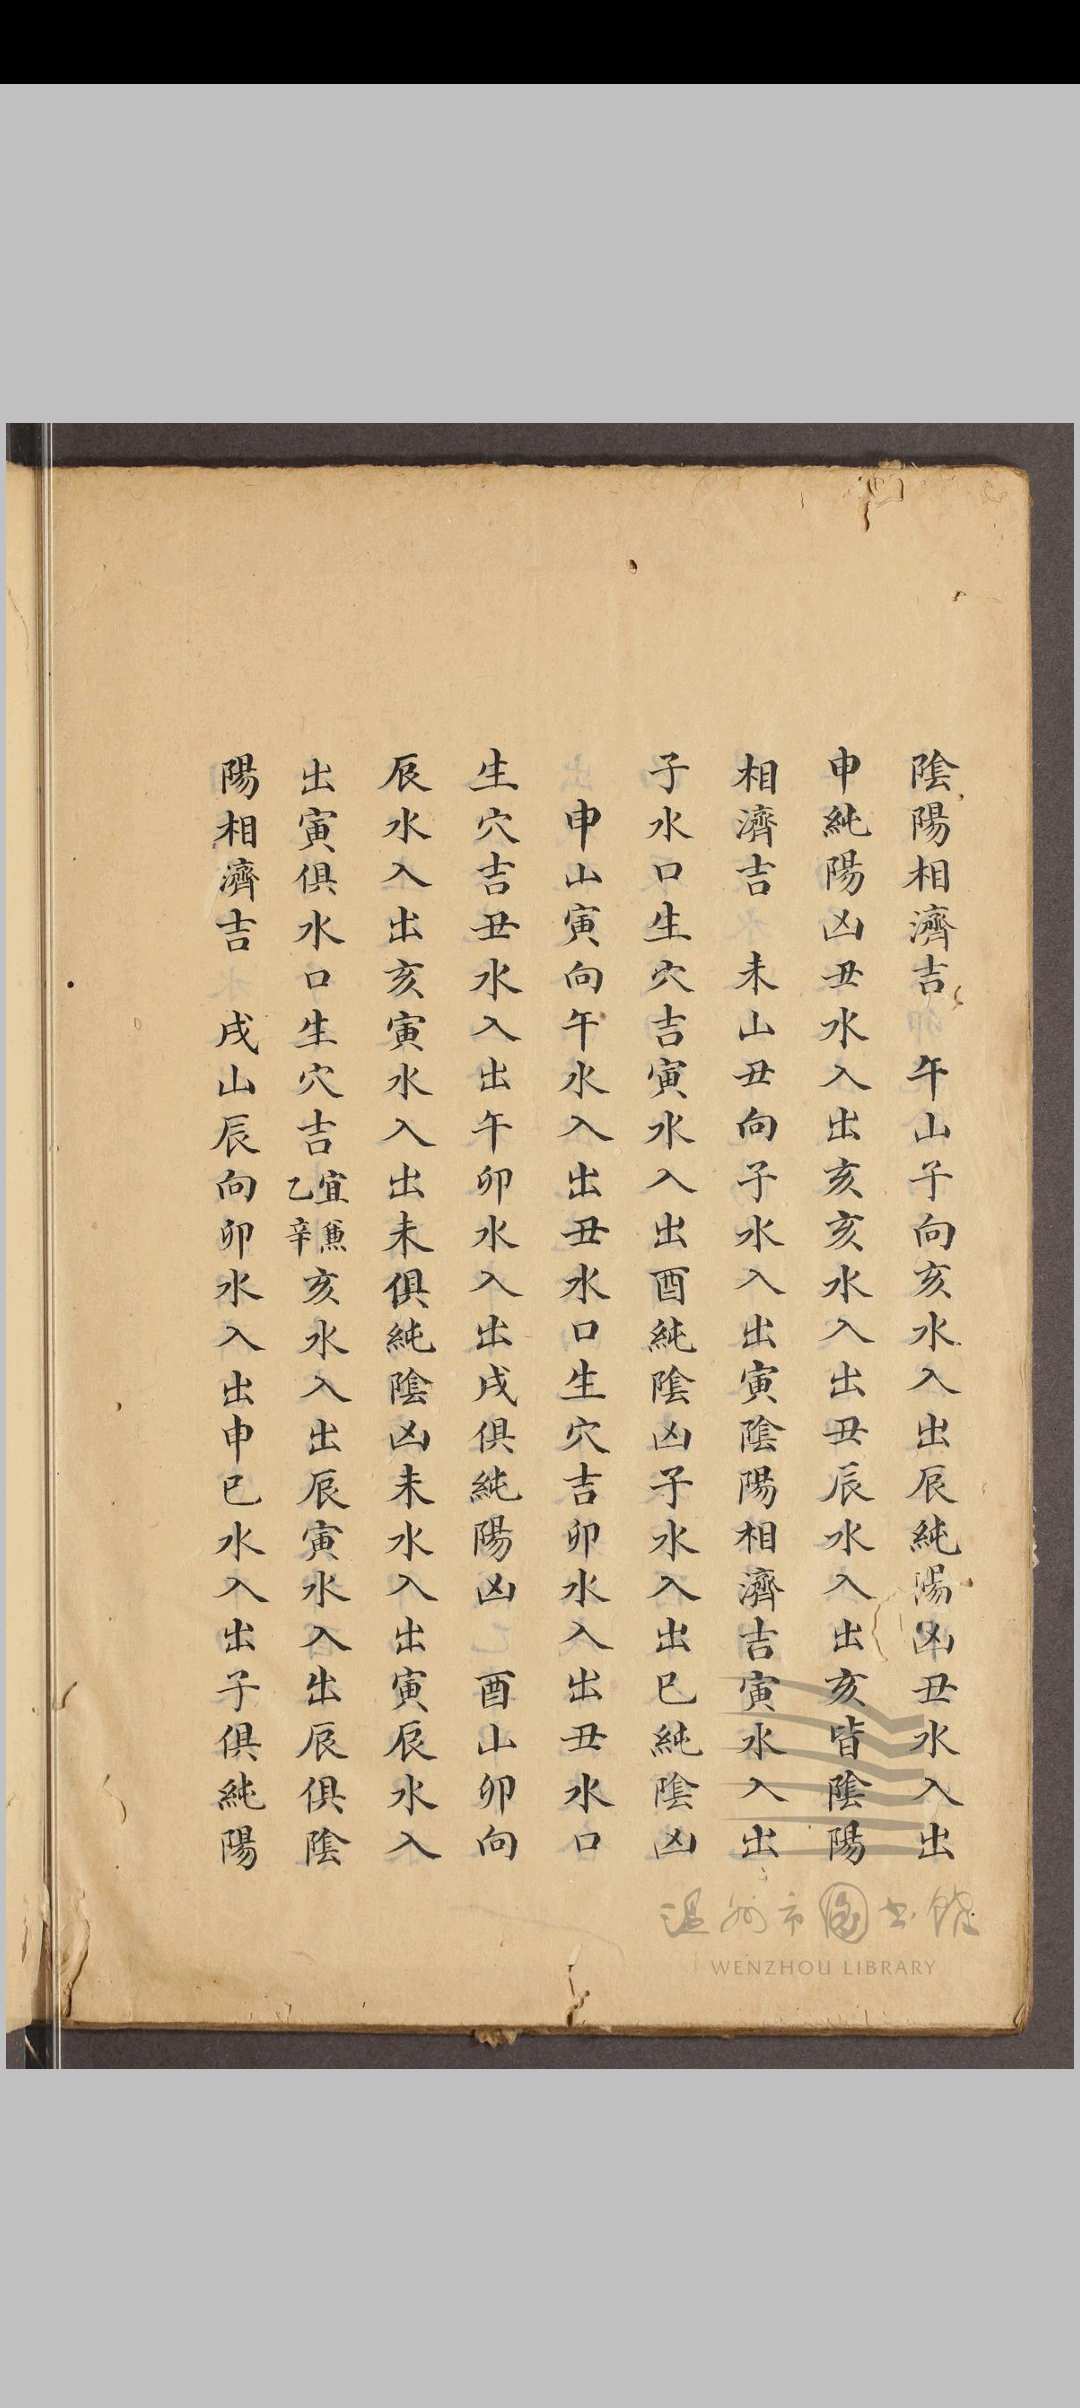 陰陽相濟吉 午山子向亥水入出辰純陽凶丑水入出
申純陽凶丑水入出亥亥水入出丑辰水入出亥皆陰陽
相濟吉 未山丑向子水入出寅陰陽相濟吉寅水入出
子水口生穴吉寅水入出酉純陰凶子水入出巳純陰凶
申山寅向午水入出丑水口生穴吉卯水入出丑水口
生穴吉丑水入出午卯水入出戌俱純陽凶 酉山卯向
辰水入出亥寅水入出未俱純陰凶未水入出寅辰水入
出寅俱水口生穴吉宜兼乙辛亥水入出辰寅水入出辰俱陰
陽相濟吉 戌山辰向卯水入出申巳水入出子俱純陽
温州市图书馆
WENZHOU LIBRARY